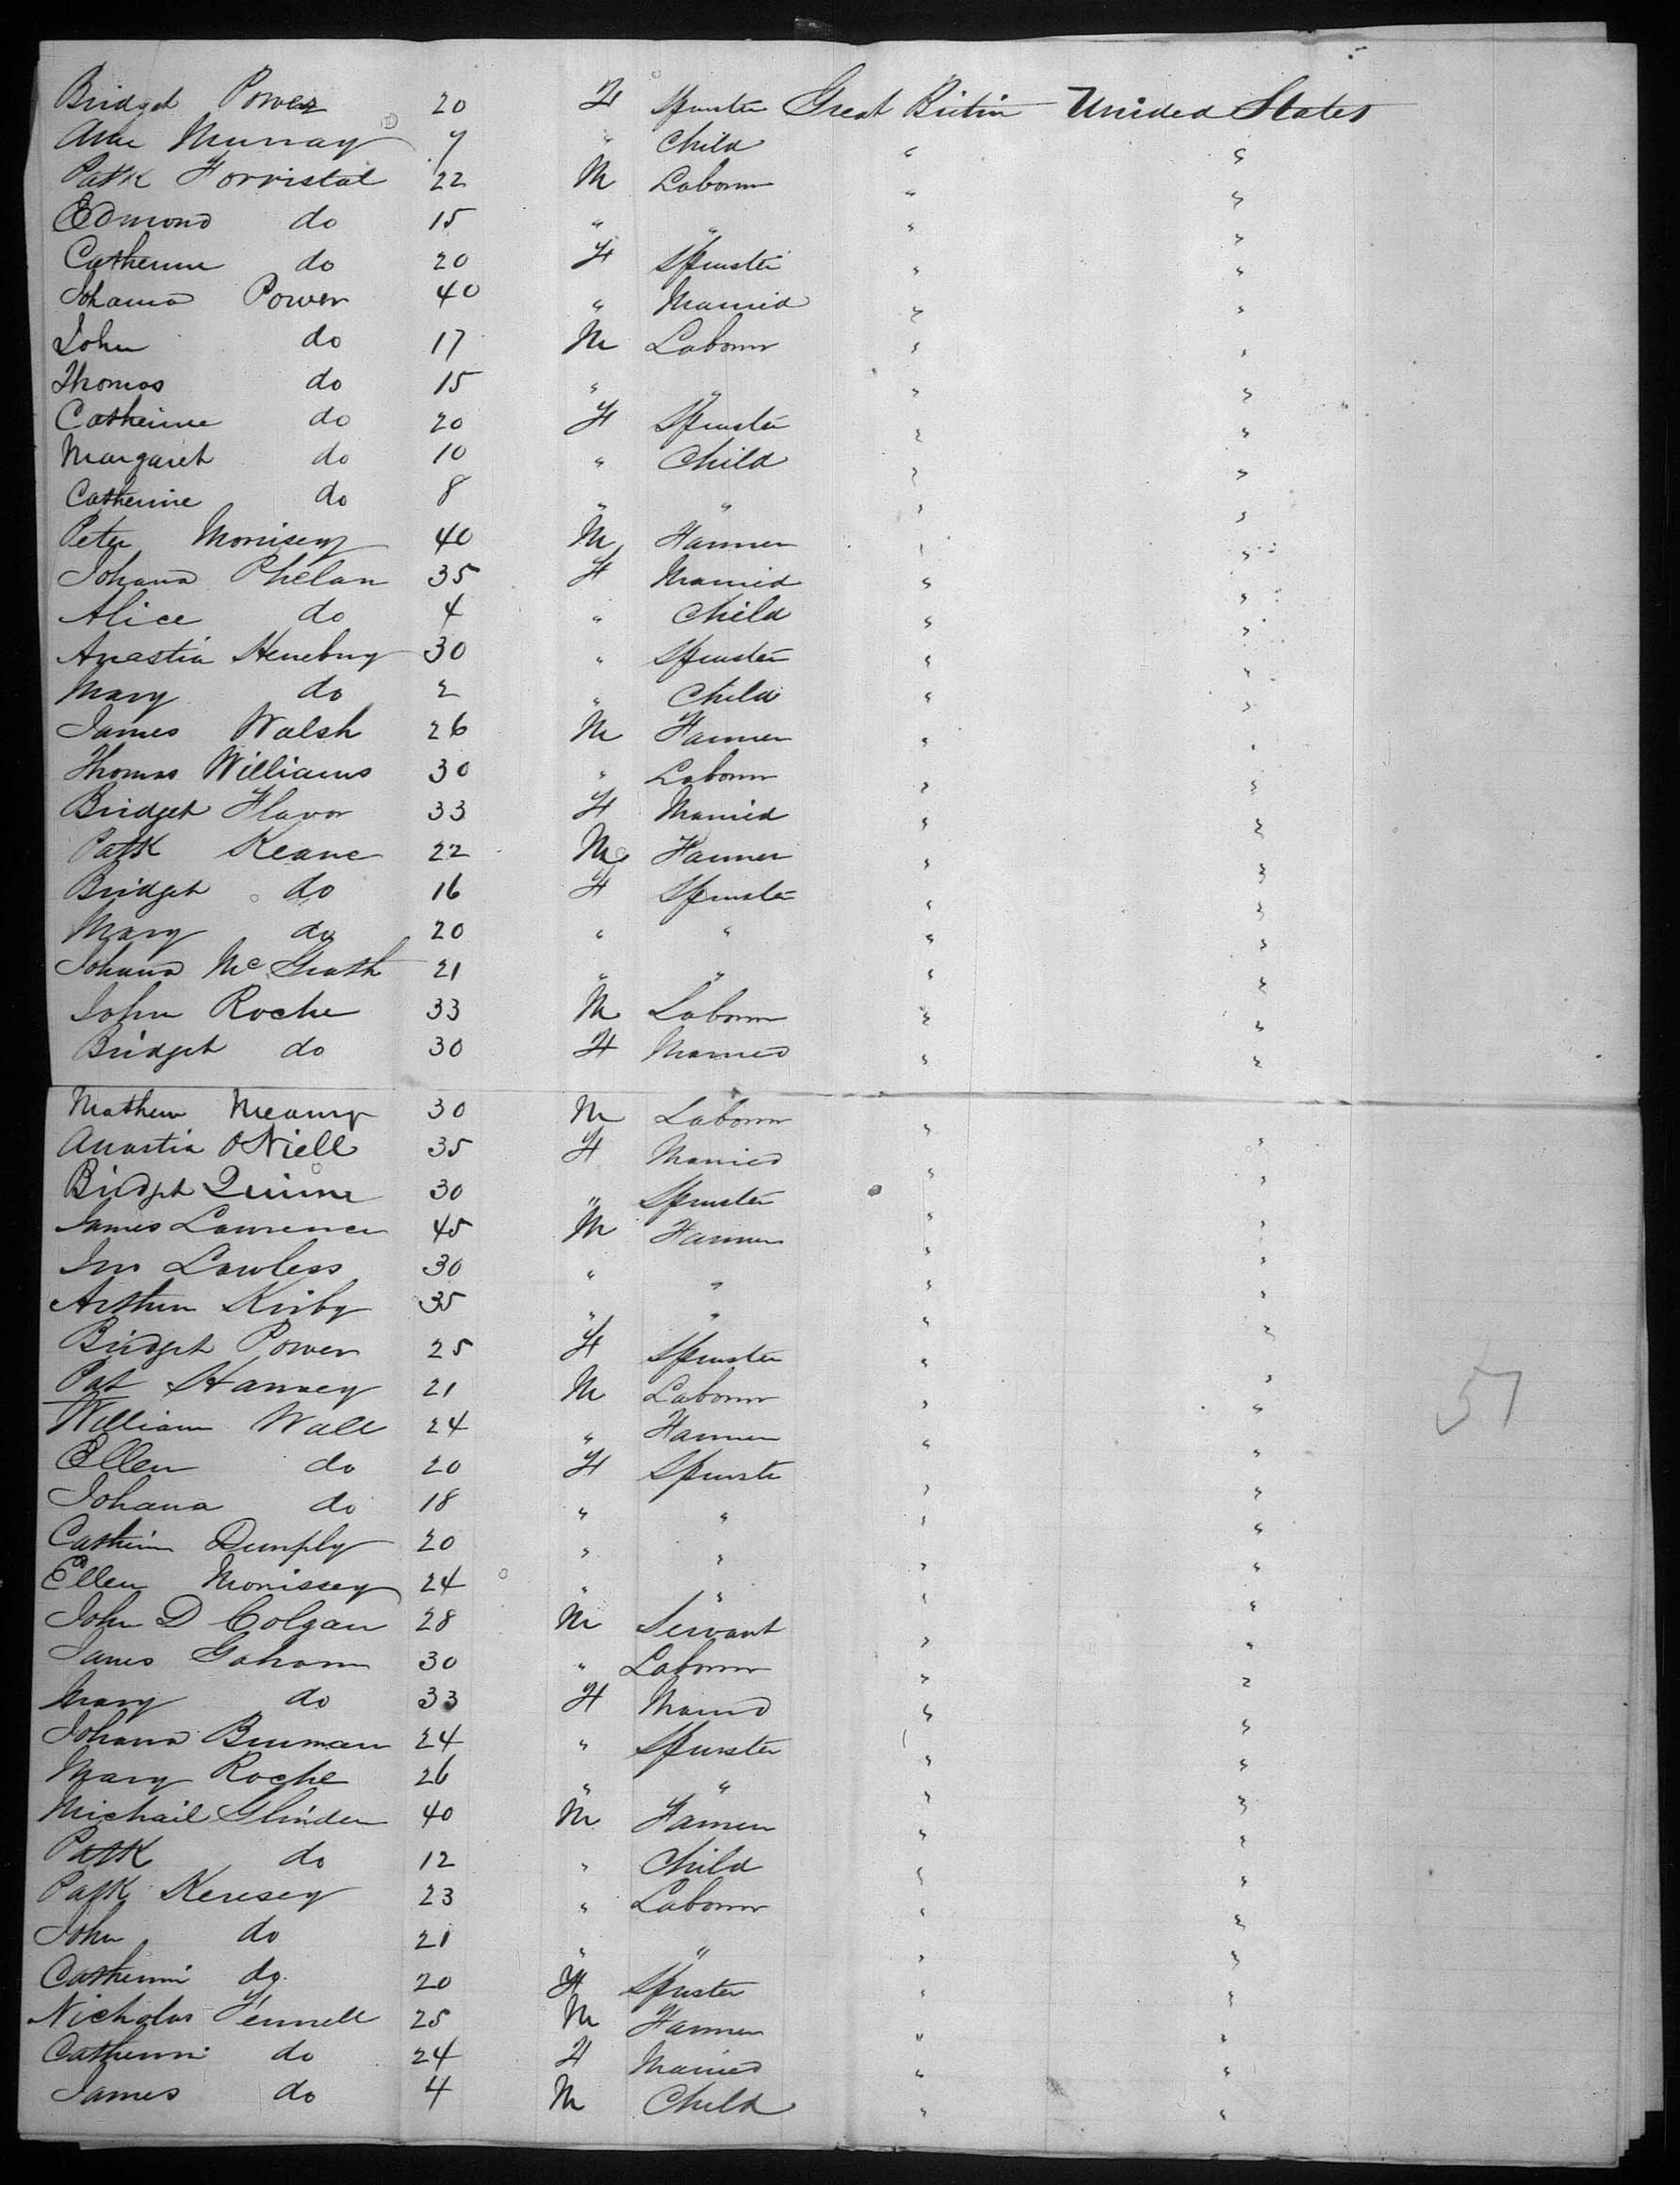 Bridget Power 20 F Spinster Great Britin United States
Ann Murray 7 " Child " "
Patk Forristal 22 M Laborer " "
Edmond do 15 " " " "
Catherine do 20 F Spinster " "
Johanna Power 40 " Married " "
John do 17 M Laborer " "
Thomas do 15 " " " "
Catherine do 20 F Spinster " "
Margaret do 10 " Child " "
Catherine do 8 " " " "
Peter Morrisey 40 M Farmer " "
Johana Phelan 35 F Married " "
Alice do 4 " Child " "
Anastia Henebury 30 " Spinster " "
Mary do 2 " Child " "
James Walsh 26 M Farmer " "
Thomas Williams 30 " Laborer " "
Bridget Flavor 33 F Married " "
Patk Keane 22 M Farmer " "
Bridget do 16 F Spinster " "
Mary do 20 " " " "
Johana McGrath 21 " " " "
John Roche 33 M Laborer " "
Bridget do 30 F Married " "
Mathew 30 M Laborer " "
Anastia ONiell 35 F Married " "
Bridget Quinn 30 " Spinster " "
James Lawrence 45 M Farmer " "
Jno Lawless 30 " " " "
Arthur Kirby 35 " " " "
Bridget Power 25 F Spinster " "
Pat Harney 21 M Laborer " "
William Wall 24 " Farmer " "
Ellen do 20 F Spinster " "
Johana do 18 " " " "
Catherin Dumphy 20 " " " "
Ellen Morissey 24 " " " "
John D Colgan 28 M Servant " "
James 30 " Laborer " "
Mary do 33 F Married " "
Johana 24 " Spinster " "
Mary Roche 26 " " " "
Michail 40 M Farmer " "
Patk do 12 " Child " "
Patk Keresey 23 " Laborer " "
John do 21 " " " "
Catherin do 20 F Spinster " "
Nicholas Fennell 25 M Farmer " "
Catherin do 24 F Married " "
James do 4 M Child " "
57